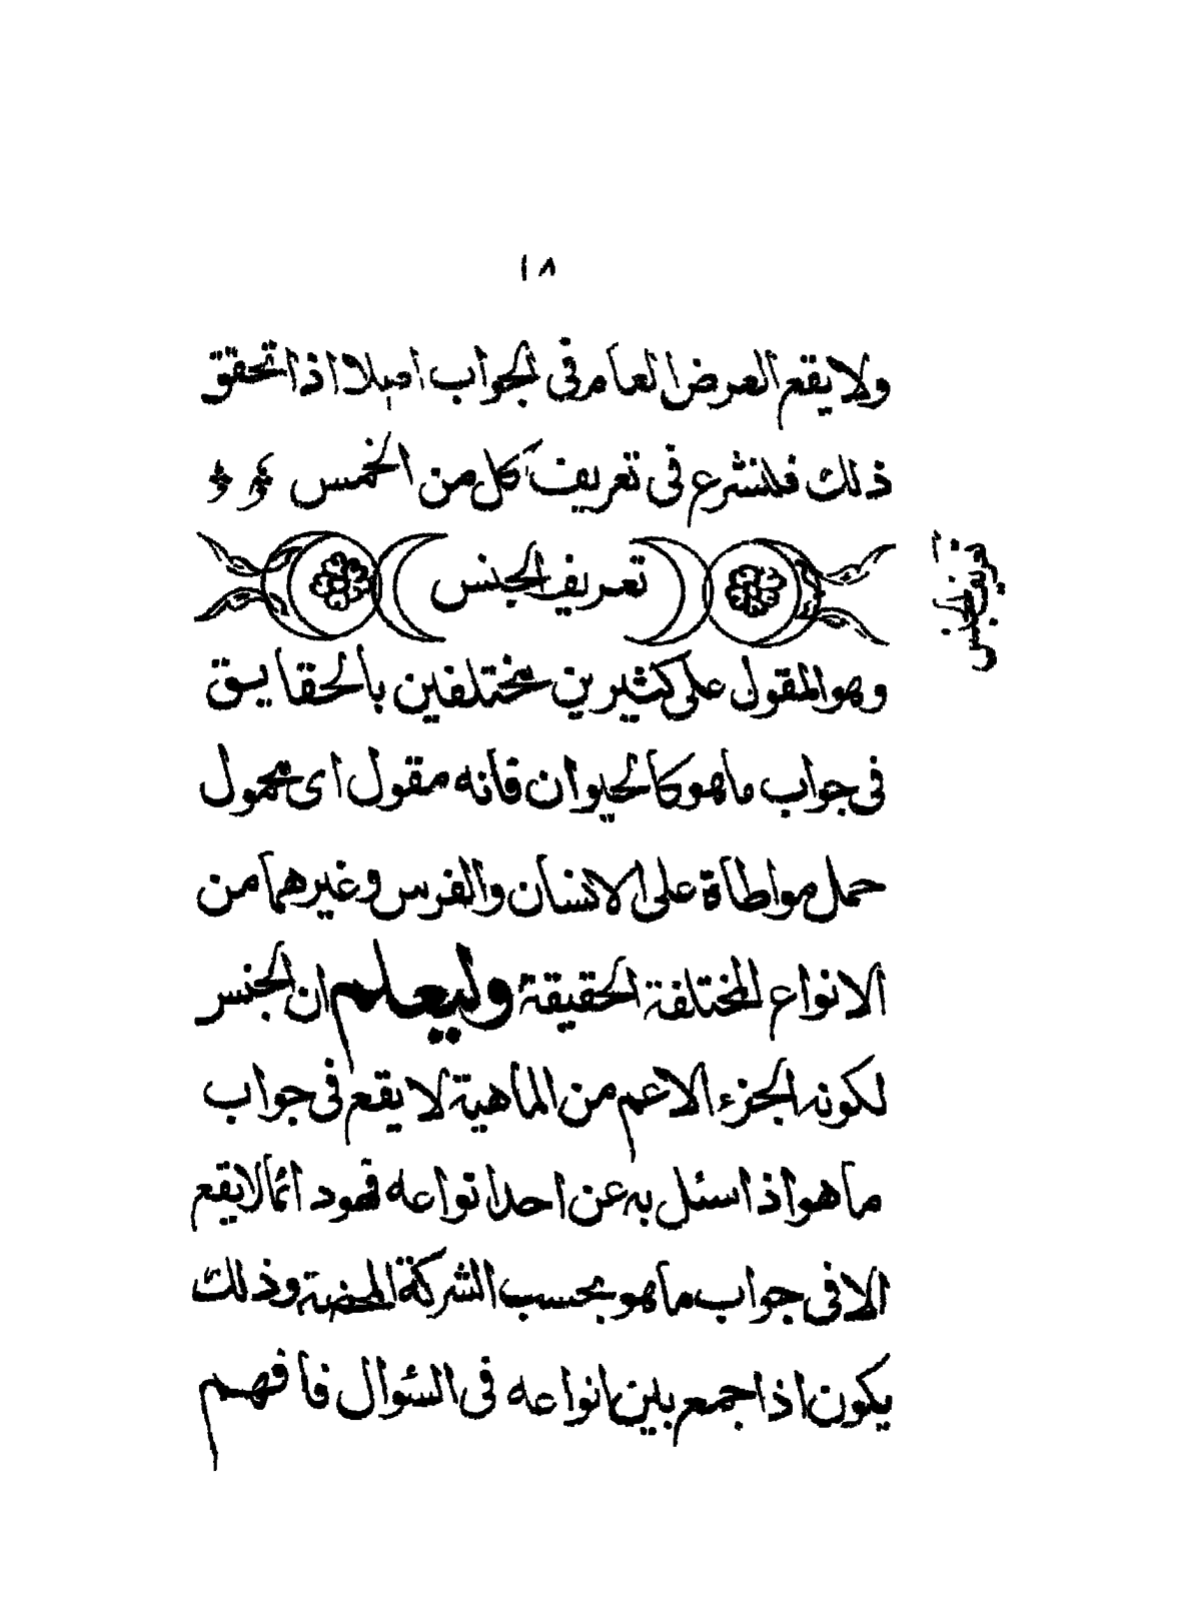 ١٨
ولا يقع العرض العام فى الجواب اصلا اذا تحقق
ذلك فلنشرع فى تعريف كل من الخمس
تعريف الجنس
تعريف الجنس
وهو المقول على كثيرين مختلفين بالحقايق
فى جواب ما هو كالحيوان فانه مقول اى محمول
حمل مواطاة على الانسان والفرس وغيرهما من
الانواع المختلفة الحقيقة وليعلم ان الجنس
لكونه الجزء الاعم من الماهية لا يقع فى جواب
ما هو اذا سئل به عن احد انواعه فهو دائما لا يقع
الا فى جواب ما هو بحسب الشركة المحضة وذلك
يكون اذا جمع بين انواعه فى السؤال فافهم